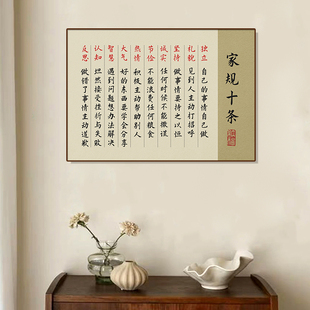 家规十条
独立 自己的事情自己做
礼貌 见到人主动打招呼
坚持 做事情要持之以恒
诚实 任何时候不能撒谎
节俭 不能浪费任何粮食
热情 积极主动帮助别人
大气 好的东西要学会分享
智慧 遇到问题想办法解决
认知 坦然接受挫折与失败
反思 做错了事情主动道歉